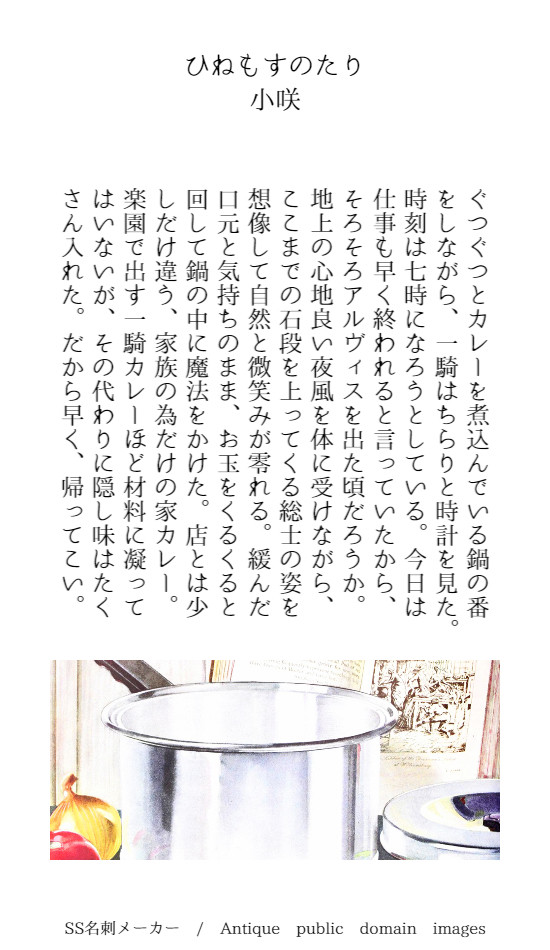 ひねもすのたり
小咲
ぐつぐつとカレーを煮込んでいる鍋の番
をしながら、一騎はちらりと時計を見た。
時刻は七時になろうとしている。今日は
仕事も早く終われると言っていたから、
そろそろアルヴィスを出た頃だろうか。
地上の心地良い夜風を体に受けながら、
ここまでの石段を上ってくる総士の姿を
想像して自然と微笑みが零れる。緩んだ
口元と気持ちのまま、お玉をくるくると
回して鍋の中に魔法をかけた。店とは少
しだけ違う、家族の為だけの家カレー。
楽園で出す一騎カレーほど材料に凝って
はいないが、その代わりに隠し味はたく
さん入れた。だから早く、帰ってこい。
SS名刺メーカー / Antique public domain images